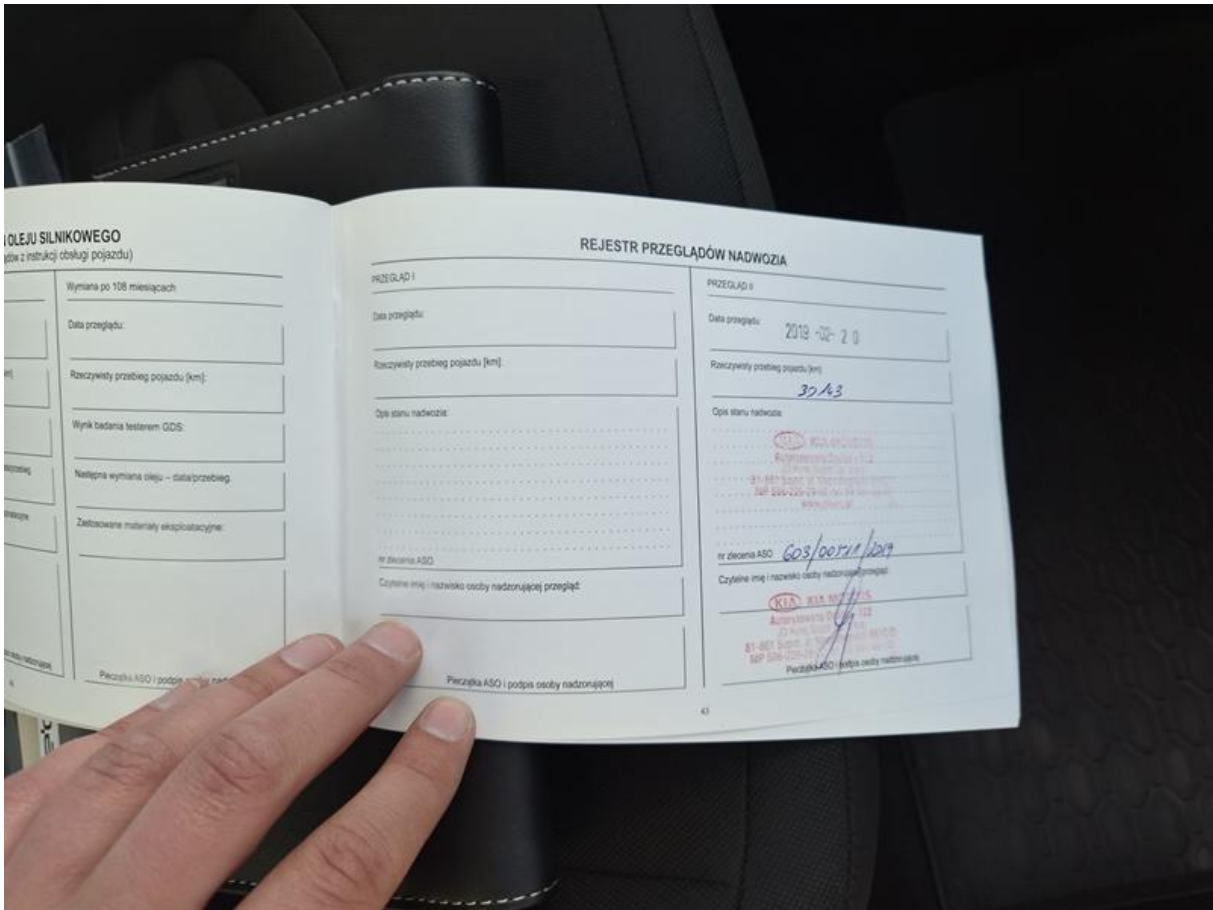 OLEJU SILNIKOWEGO
z instrukcji obsługi pojazdu)
Wymiana po 108 miesiącach
Data przeglądu:
Rzeczywisty przebieg pojazdu [km]:
Wynik badania testerem GDS:
Następna wymiana oleju – data/przebieg:
Zastosowane materiały eksploatacyjne:
Pieczątka ASO i podpis osoby
REJESTR PRZEGLĄDÓW NADWOZIA
PRZEGLĄD I
Data przeglądu:
Rzeczywisty przebieg pojazdu [km]:
Opis stanu nadwozia:
nr zlecenia ASO
Czytelne imię i nazwisko osoby nadzorującej przegląd:
Pieczątka ASO i podpis osoby nadzorującej
PRZEGLĄD II
Data przeglądu:
2019 -02- 20
Rzeczywisty przebieg pojazdu [km]:
Opis stanu nadwozia:
KIA KIA MOTORS
nr zlecenia ASO
Czytelne imię i nazwisko osoby nadzorującej przegląd:
KIA KIA MOTORS
Pieczątka ASO i podpis osoby nadzorującej
43